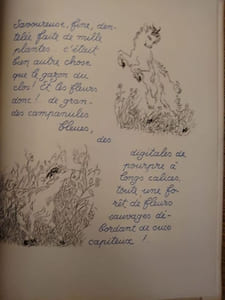 Savoureuse, fine, den-
telée faite de mille
plantes... c'était
bien autre chose
que le gazon du
clos! Et les fleurs
donc!... de gran-
des campanules
bleues,
des
digitales de
pourpre à
longs calices,
toute une fo-
rêt de fleurs
sauvages dé-
bordant de sucs
capiteux !